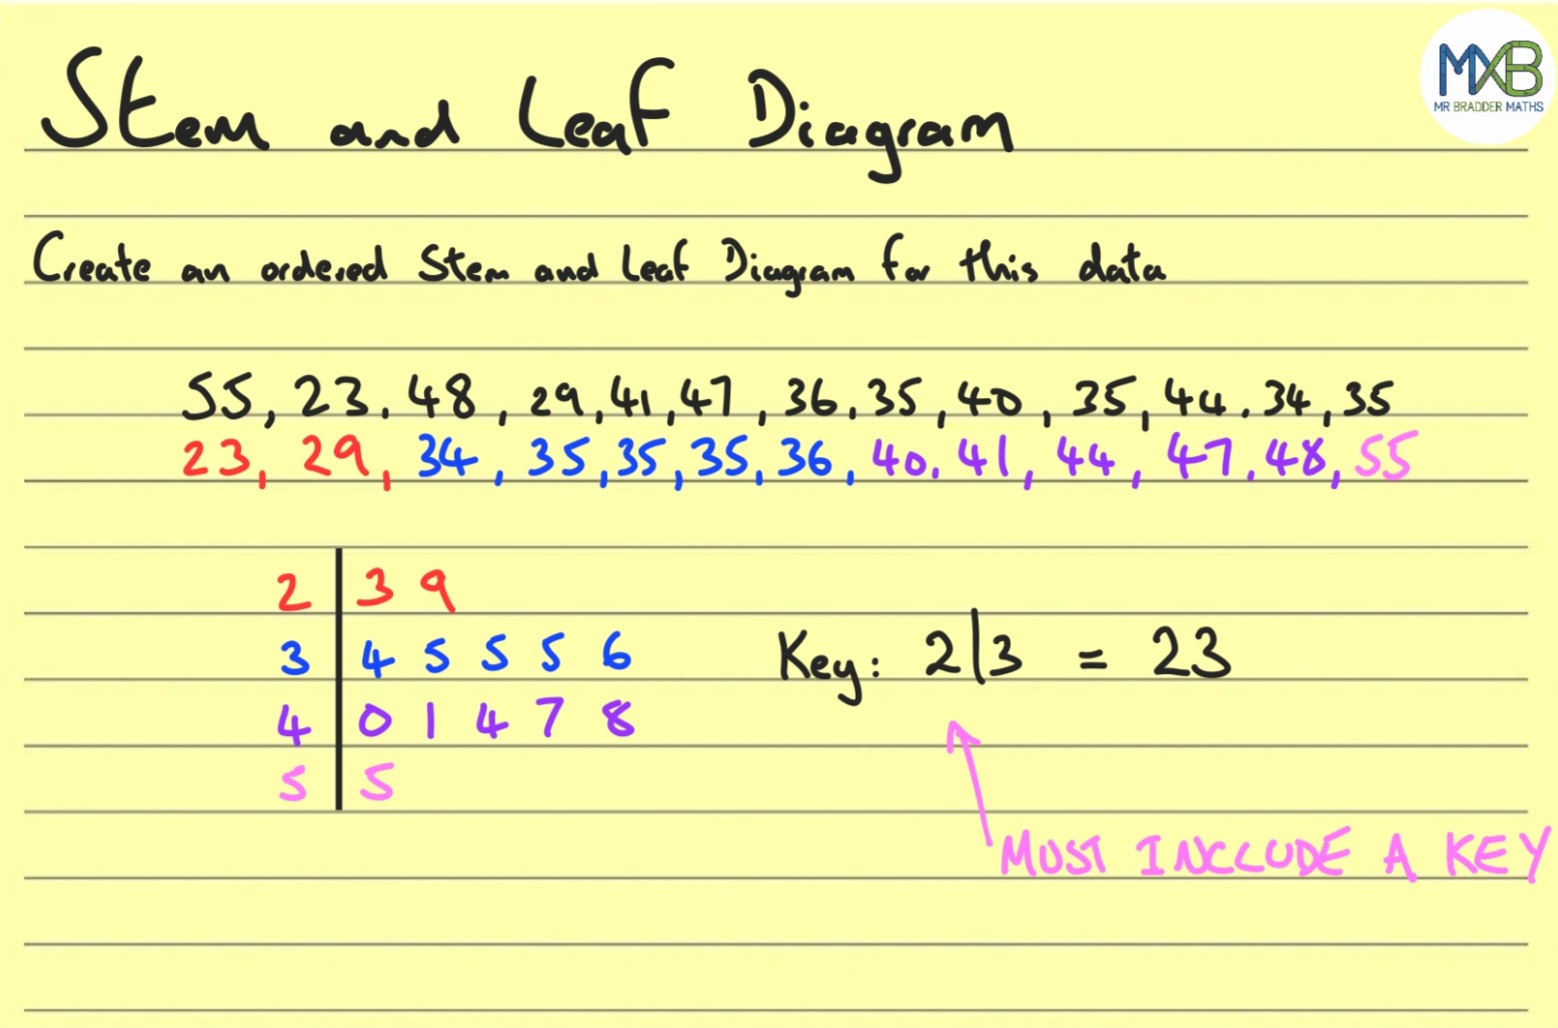 Stem and Leaf Diagram
MXB
MR BRADDER MATHS
Create an ordered Stem and Leaf Diagram for this data
55, 23, 48, 29, 41, 47, 36, 35, 40, 35, 44, 34, 35
23, 29, 34, 35, 35, 35, 36, 40, 41, 44, 47, 48, 55
2 | 3 9
3 | 4 5 5 5 6
4 | 0 1 4 7 8
5 | 5
Key: 2|3 = 23
MUST INCLUDE A KEY